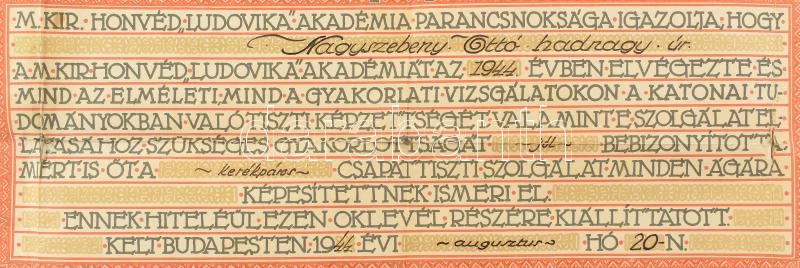 M. KIR. HONVÉD „LUDOVIKA” AKADÉMIA PARANCSNOKSÁGA IGAZOLJA, HOGY
Nagyszebeny Ottó hadnagy úr
A M. KIR. HONVÉD „LUDOVIKA” AKADÉMIÁT AZ 1944. ÉVBEN ELVÉGEZTE ÉS
MIND AZ ELMÉLETI, MIND A GYAKORLATI VIZSGÁLATOKON A KATONAI TU-
DOMÁNYOKBAN VALÓ TISZTI KÉPZETTSÉGÉT, VALAMINT E SZOLGÁLAT EL-
LÁTÁSÁHOZ SZÜKSÉGES GYAKORLOTTSÁGÁT ~ jól ~ BEBIZONYÍTOTTA,
MÉRT IS ŐT A ~ kerékpáros ~ CSAPATTISZTI SZOLGÁLAT MINDEN ÁGÁRA
KÉPESÍTETTNEK ISMERI EL.
ENNEK HITELÉÜL EZEN OKLEVÉL RÉSZÉRE KIÁLLÍTTATOTT.
KELT BUDAPESTEN, 1944 ÉVI ~ augusztus ~ HÓ 20-N.
darabanth